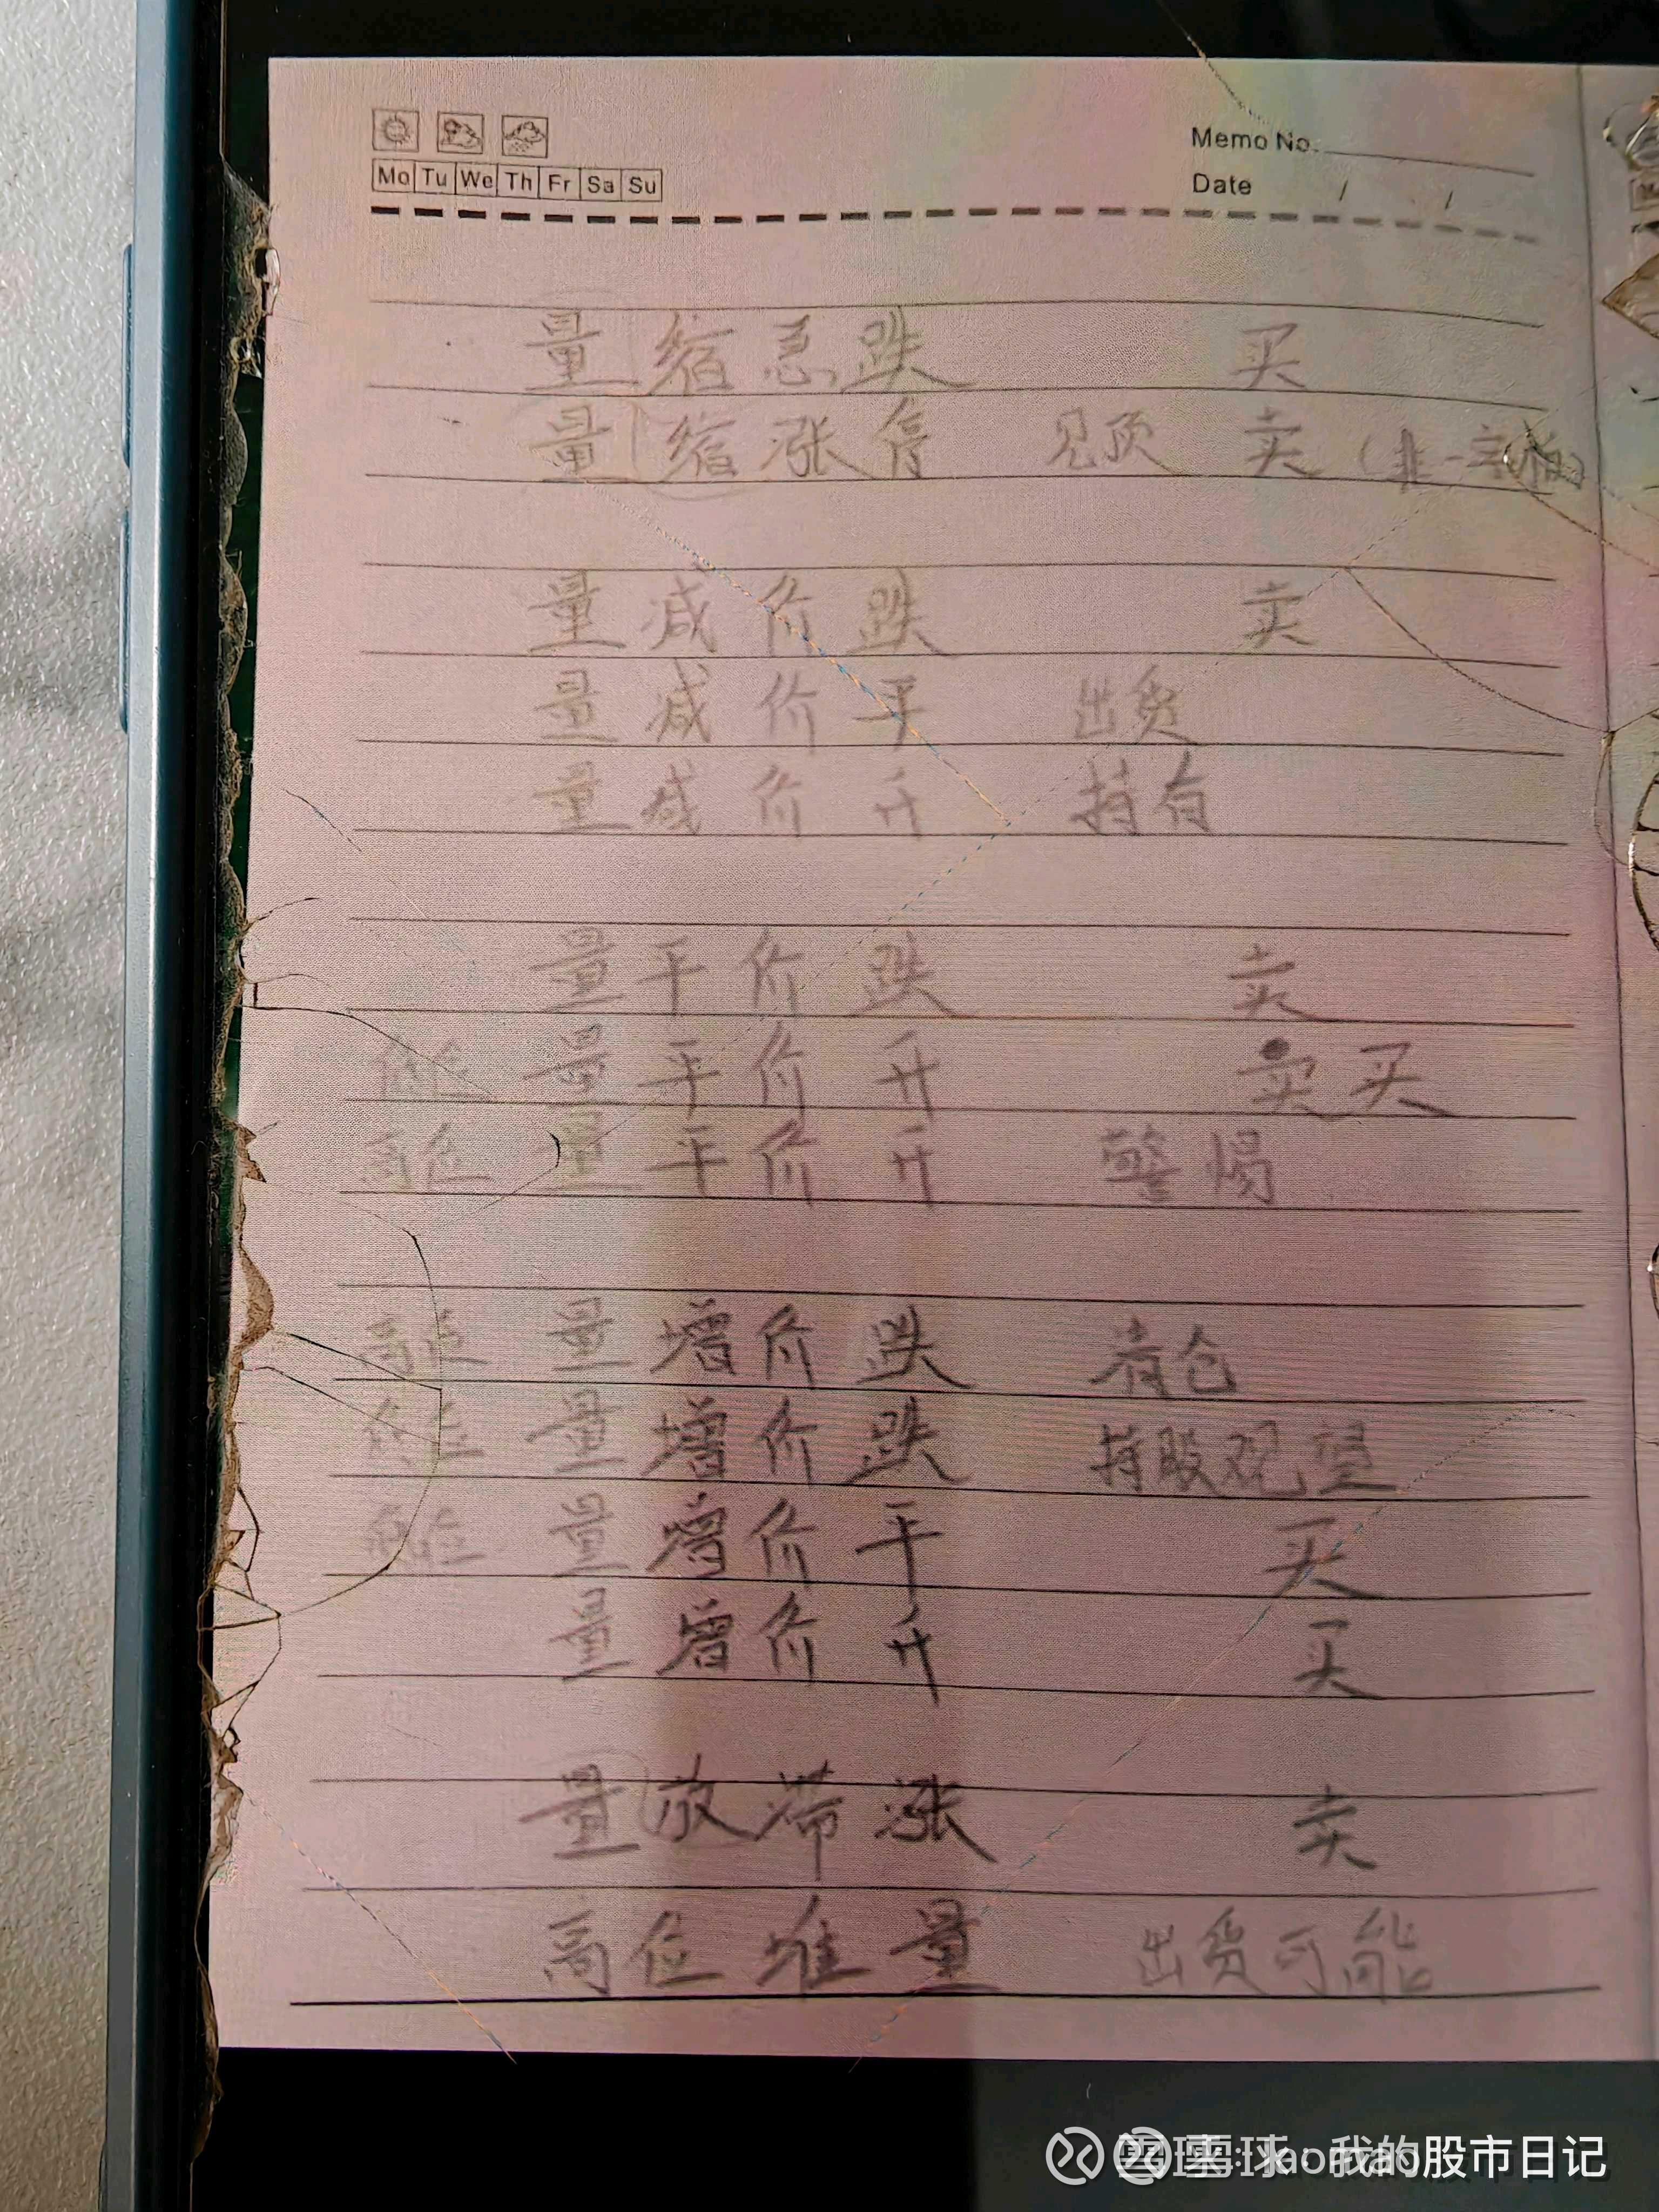 Memo No.
Mo Tu We Th Fr Sa Su
Date / /
量缩急跌 买
量缩涨停 见顶 卖 (非一字板)
量减价跌 卖
量减价平 出货
量减价升 持有
量平价跌 卖
低位 量平价升 卖买
高位 量平价升 警惕
高位 量增价跌 清仓
低位 量增价跌 持股观望
低位 量增价平 买
量增价升 买
量放滞涨 卖
高位堆量 出货可能
我的股市日记